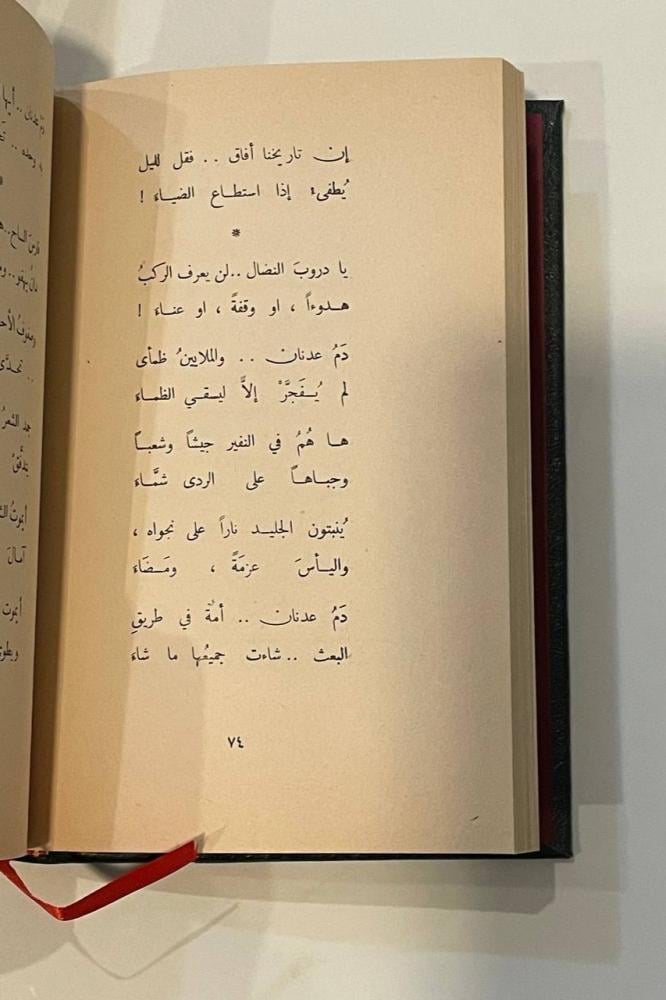 إن تاريخنا أفاق .. فقل لليل
يُطفىء إذا استطاع الضياء !
*
يا دروبَ النضال ..لن يعرف الركبُ
هدوءاً ، او وقفةً ، او عناء !
دَمُ عدنان .. والملايينُ ظمأى
لم يُفَجَّرْ إلاَّ ليسقي الظماء
ها هُمُ في النفير جيشاً وشعباً
وجباهاً على الردى شمَّاء
يُنبتون الجليد ناراً على نجواه ،
واليأسَ عزمَةً ، ومَضَاء
دَمُ عدنان .. أمةٌ في طريقِ
البعث ..شاءت جميعُها ما شاء
٧٤